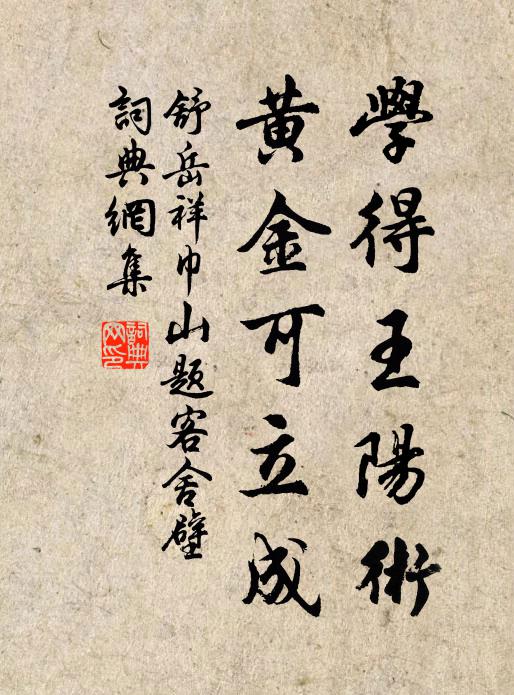 學得王陽術
黃金可立成
舒岳祥巾山題客舍壁
詞典網集
詞典
网印